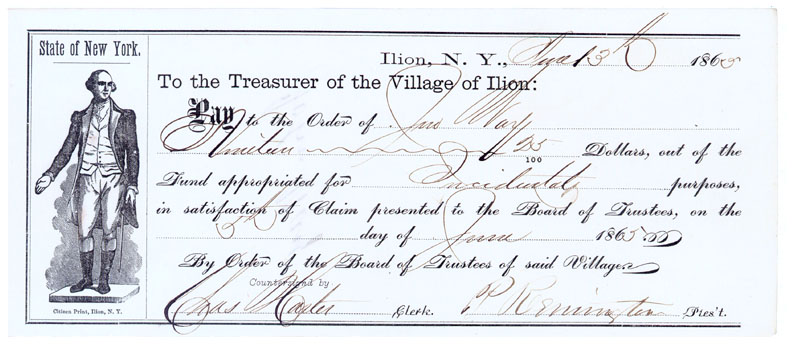 State of New York.
Ilion, N. Y., June 13th 1865
To the Treasurer of the Village of Ilion:
Pay to the Order of Jno Way
Nineteen 25/100 Dollars, out of the
Fund appropriated for Incidental purposes,
in satisfaction of Claim presented to the Board of Trustees, on the
5th day of June 1865
By Order of the Board of Trustees of said Village.
Countersigned by
Chas Harter Clerk. P Remington Pres't.
Citizen Print, Ilion, N. Y.